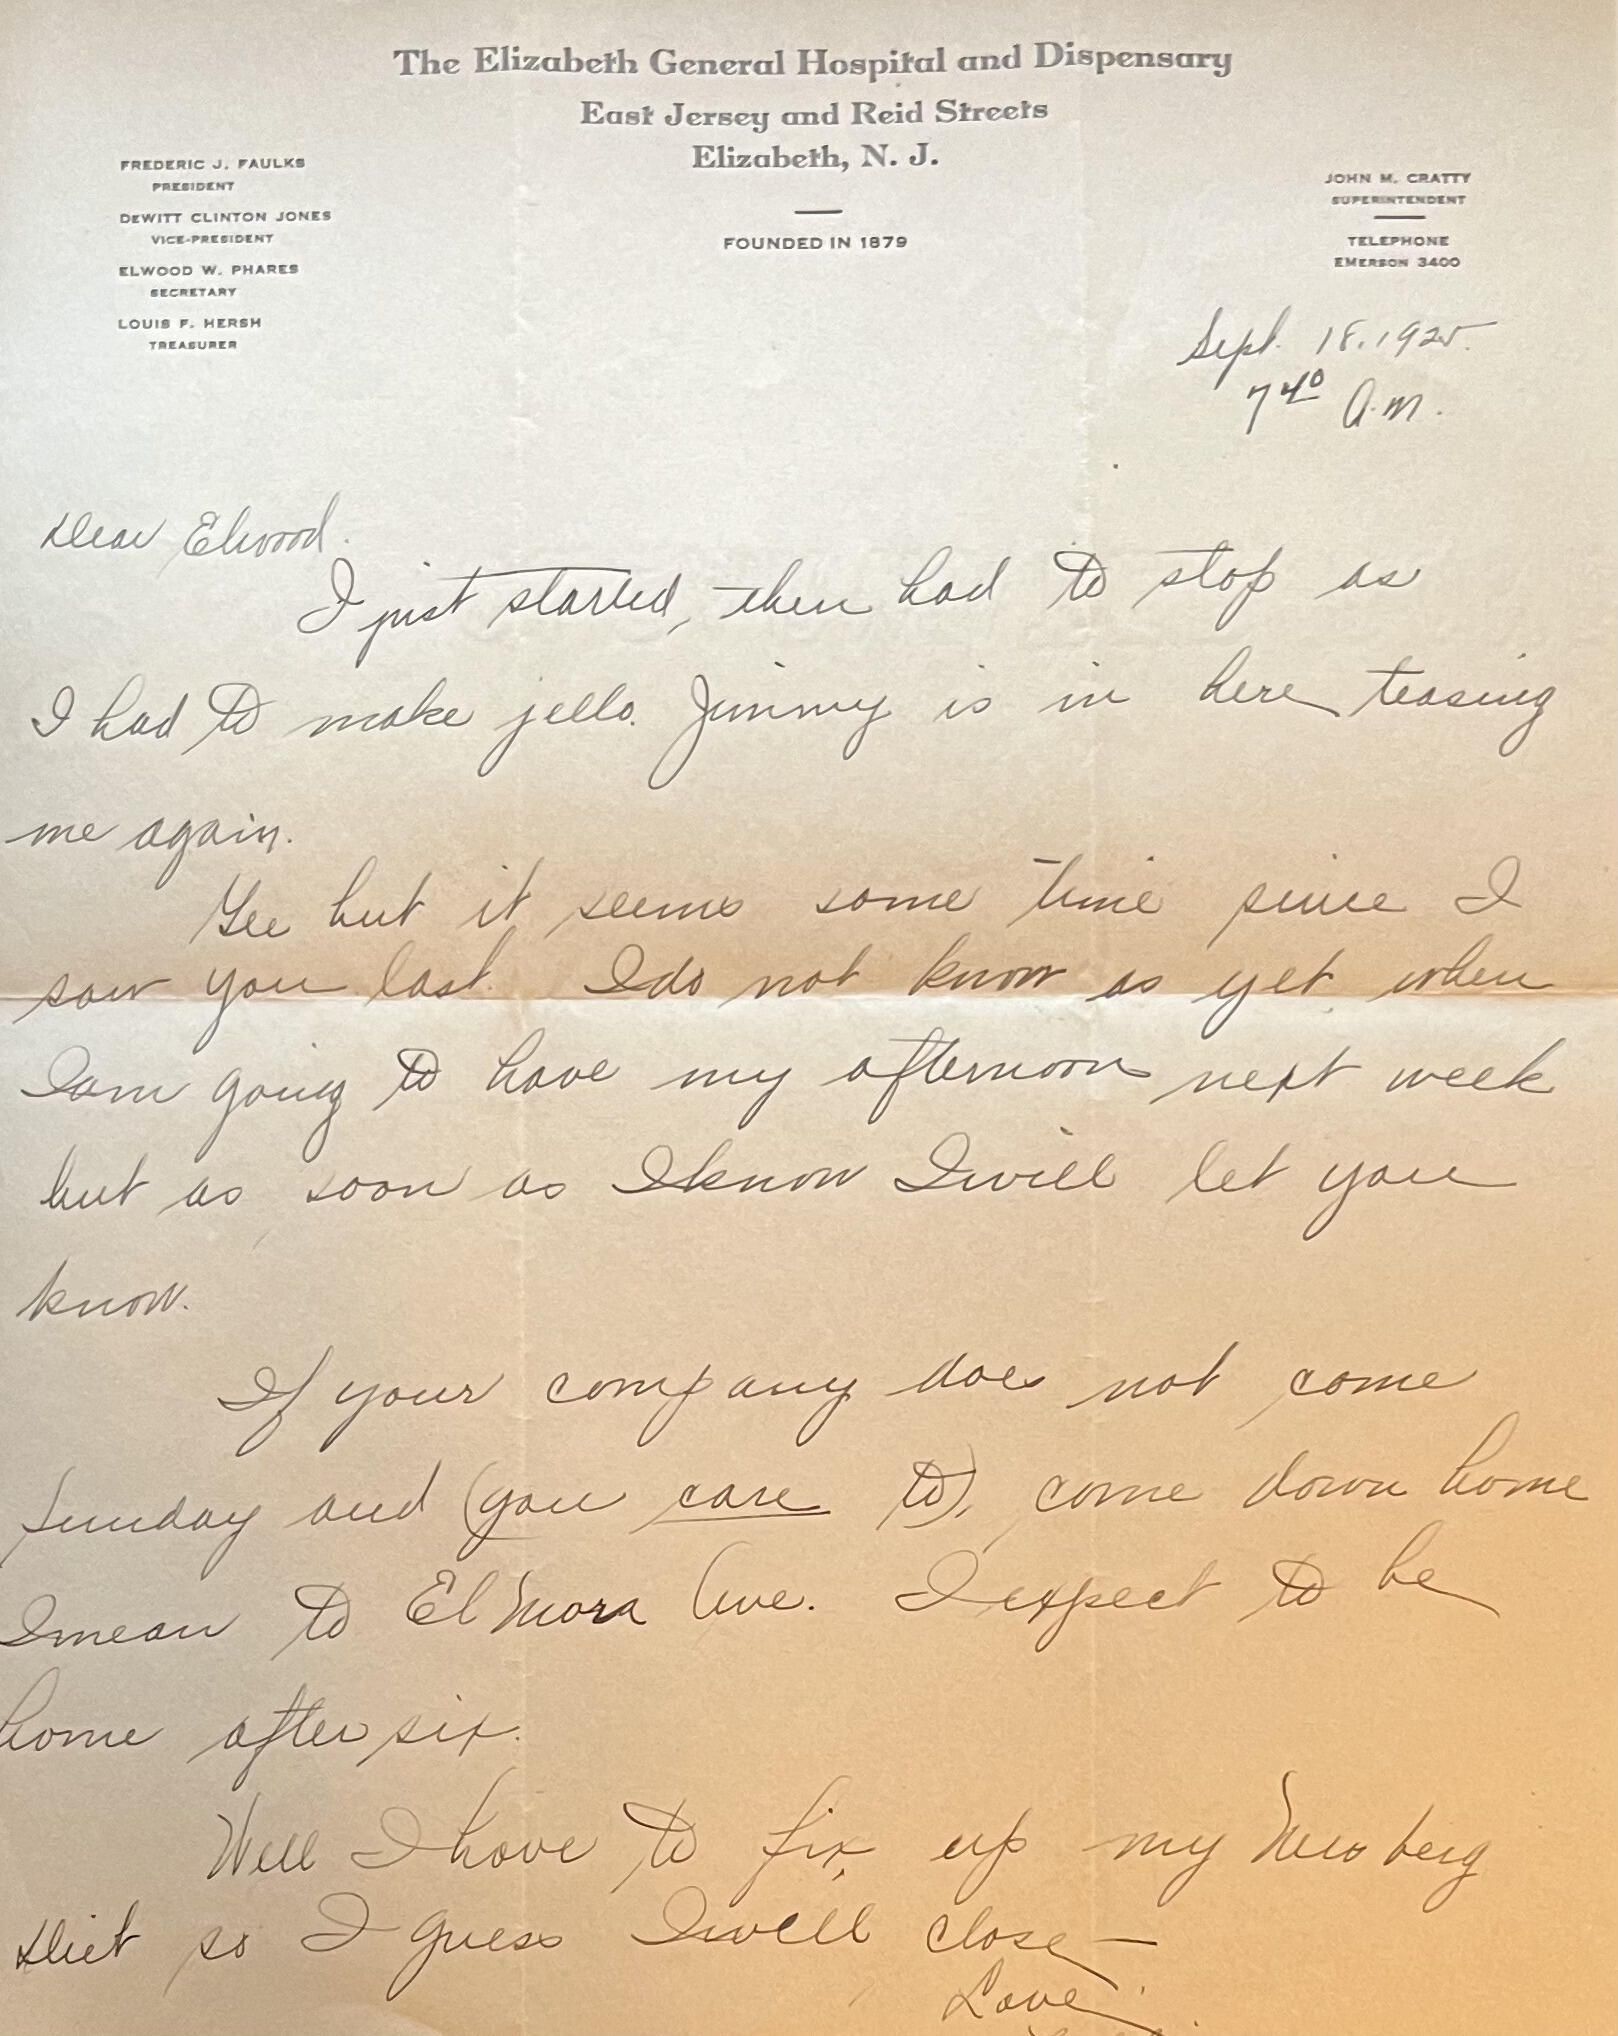 The Elizabeth General Hospital and Dispensary
East Jersey and Reid Streets
Elizabeth, N. J.
FOUNDED IN 1879
FREDERIC J. FAULKS
PRESIDENT
DEWITT CLINTON JONES
VICE-PRESIDENT
ELWOOD W. PHARES
SECRETARY
LOUIS F. HERSH
TREASURER
JOHN M. CRATTY
SUPERINTENDENT
TELEPHONE
EMERSON 3400
Sept. 18. 1925.
7 40 A.M.
Dear Elwood.
I just started, then had to stop as
I had to make jello. Jimmy is in here teasing
me again.
Gee but it seems some time since I
saw you last. I do not know as yet when
I am going to have my afternoon next week
but as soon as I know I will let you
know.
If your company does not come
Sunday and (you care to), come down home
I mean to El Mora Ave. I expect to be
home after six.
Well I have to fix up my Newberg
diet so I guess I will close —
Love